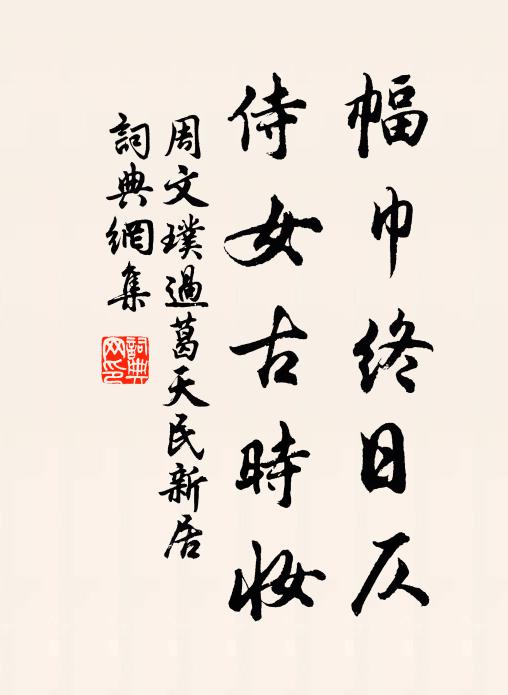 幅巾終日仄
侍女古時妝
周文璞過葛天民新居
詞典網集
詞典
网印